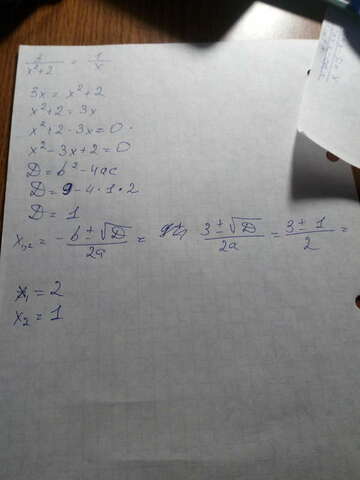 /x²+2 = 1/x
3x = x²+2
x²+2 = 3x
x²+2-3x=0.
x²-3x+2=0
D=b²-4ac
D=9-4·1·2
D=1
x₁,₂ = -b±√D/2a = 3±√D/2a = 3±1/2 =
x₁=2
x₂=1